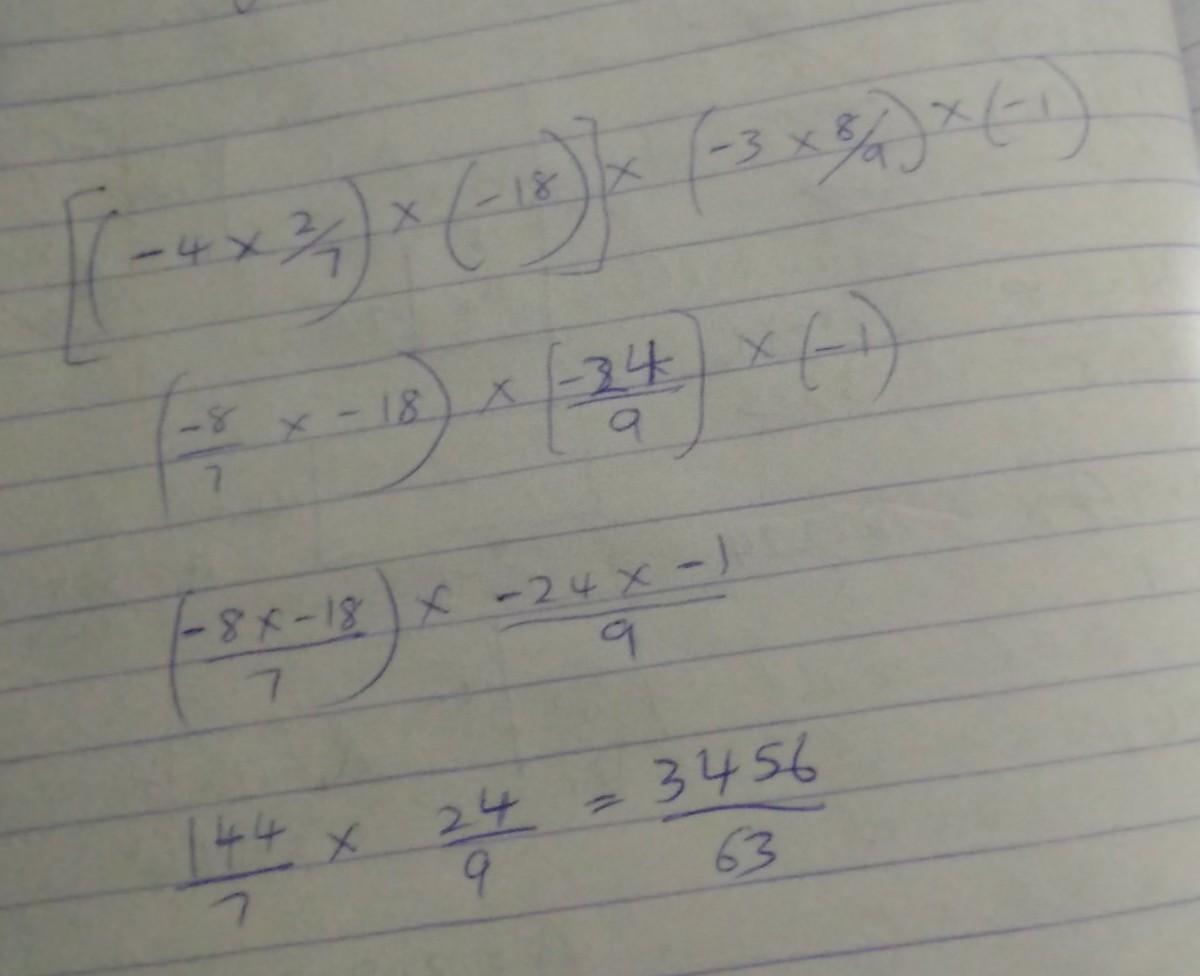 [(-4 × 2/7) × (-18)] × (-3 × 8/9) × (-1)
(-8/7 × -18) × [-24/9] × (-1)
(-8 × -18/7) × -24 × -1/9
144/7 × 24/9 = 3456/63